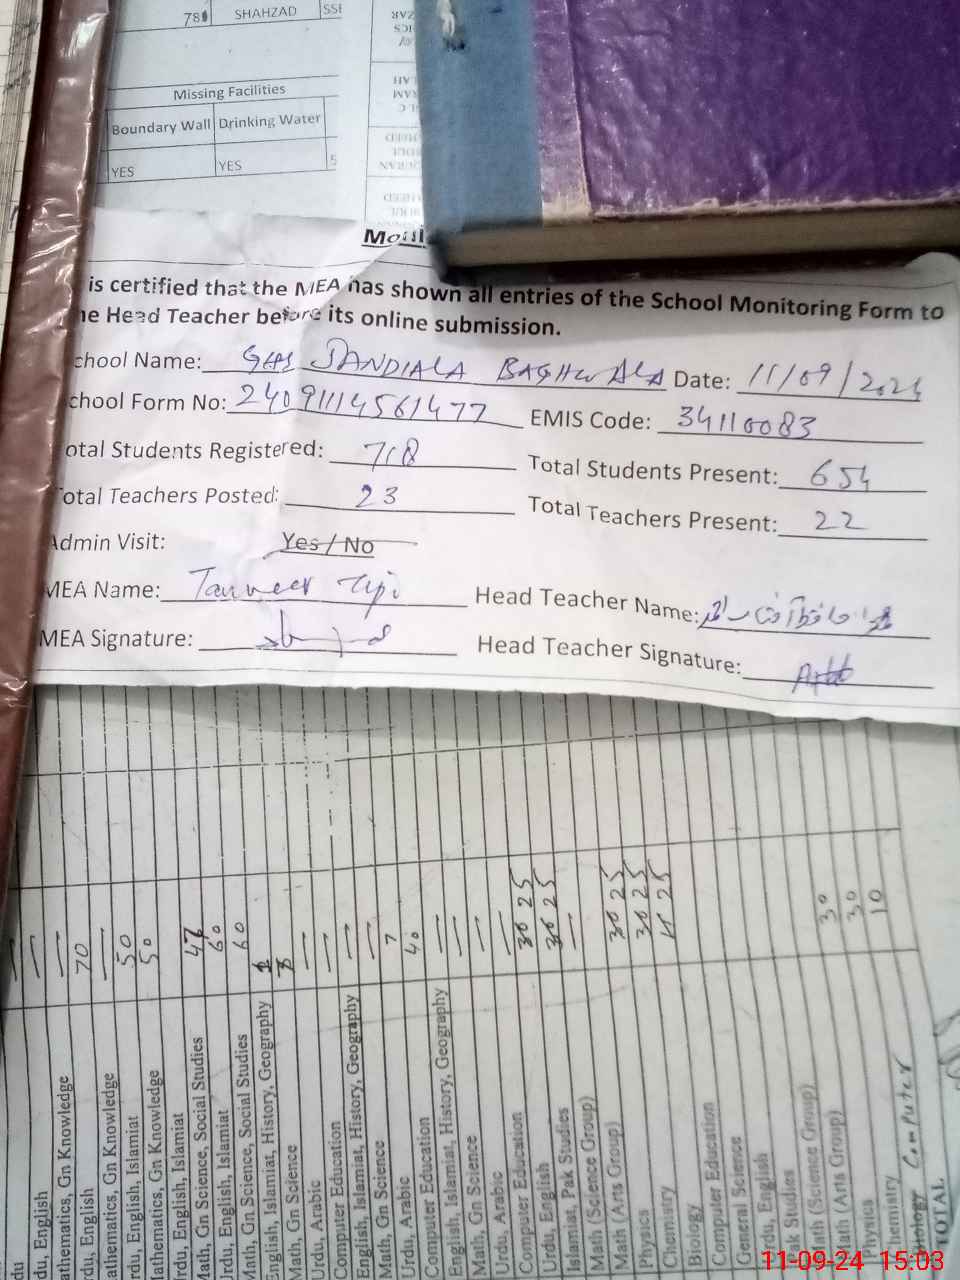 SHAHZAD
Missing Facilities
Boundary Wall Drinking Water
YES YES
is certified that the MEA has shown all entries of the School Monitoring Form to
he Head Teacher before its online submission.
chool Name: JANDIALA BAGHWALA Date: 11/09/2024
chool Form No: EMIS Code: 34110083
otal Students Registered: 718 Total Students Present: 654
Total Teachers Posted: 23 Total Teachers Present: 22
Admin Visit: Yes / No
MEA Name: Tanveer Head Teacher Name:
MEA Signature: Head Teacher Signature:
du, English
athematics, Gn Knowledge 70
rdu, English
athematics, Gn Knowledge 50
rdu, English, Islamiat 50
athematics, Gn Knowledge
rdu, English, Islamiat 47
Math, Gn Science, Social Studies 60
rdu, English, Islamiat 60
Math, Gn Science, Social Studies
English, Islamiat, History, Geography
Math, Gn Science
Urdu, Arabic
Computer Education
English, Islamiat, History, Geography
Math, Gn Science 7
Urdu, Arabic 40
Computer Education
English, Islamiat, History, Geography
Math, Gn Science
Urdu, Arabic
Computer Education 30 25
Urdu, English 30 25
Islamiat, Pak Studies
Math (Science Group)
Math (Arts Group) 30 25
Physics 30 25
Chemistry 25
Biology
Computer Education
General Science
Urdu, English
Pak Studies
Math (Science Group) 30
Math (Arts Group) 30
Physics 10
Chemistry
Biology Computer
TOTAL
11-09-24 15:03